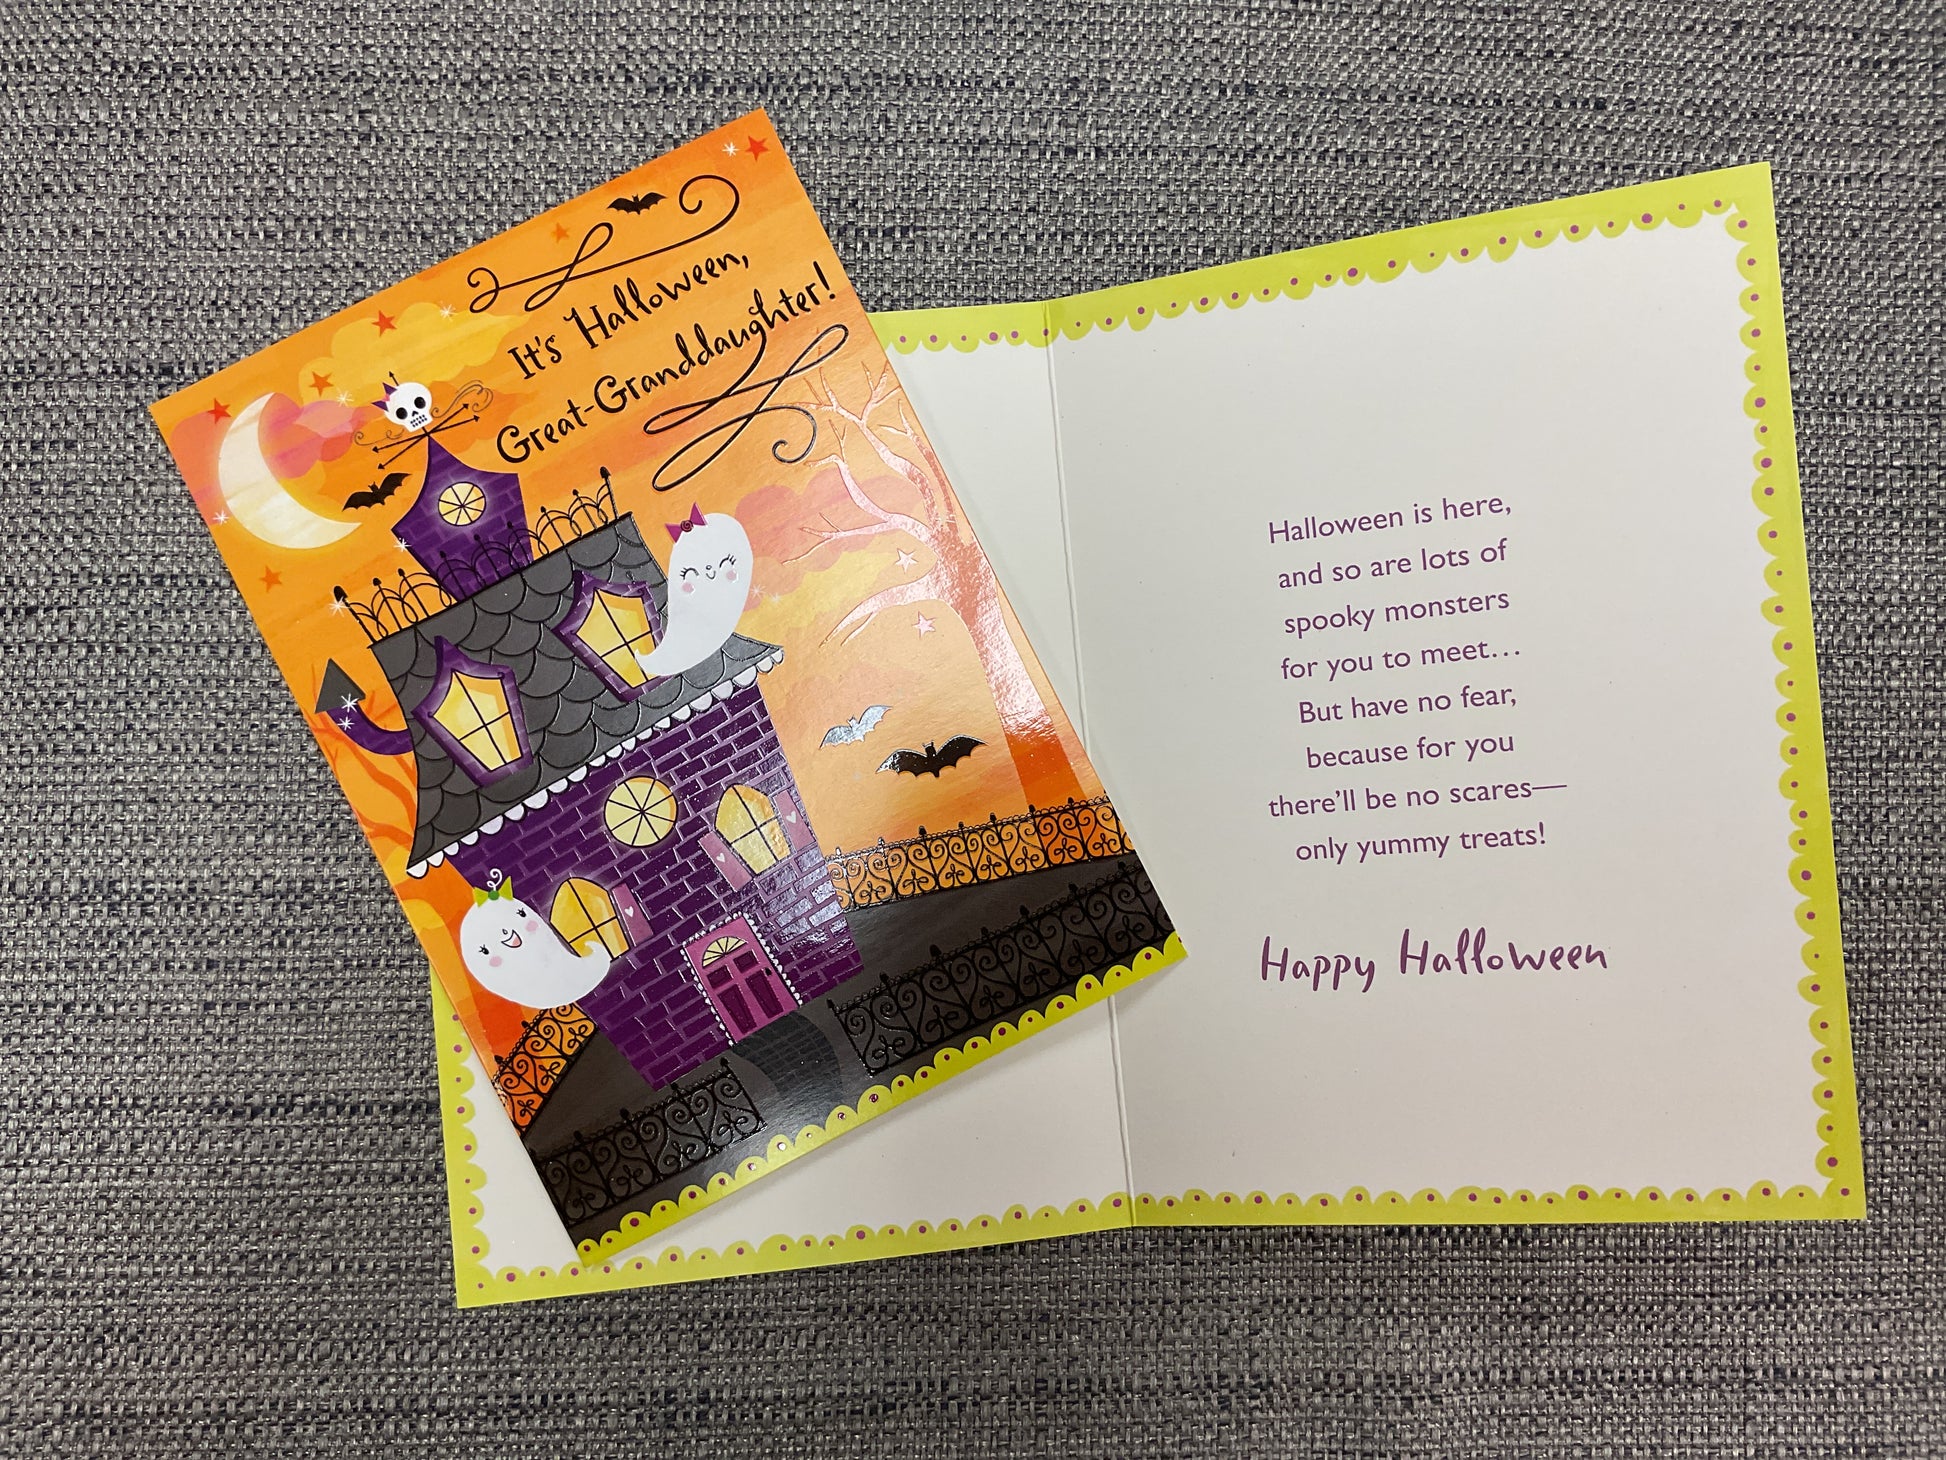 It's Halloween,
Great-Granddaughter!
Halloween is here,
and so are lots of
spooky monsters
for you to meet...
But have no fear,
because for you
there'll be no scares—
only yummy treats!
Happy Halloween